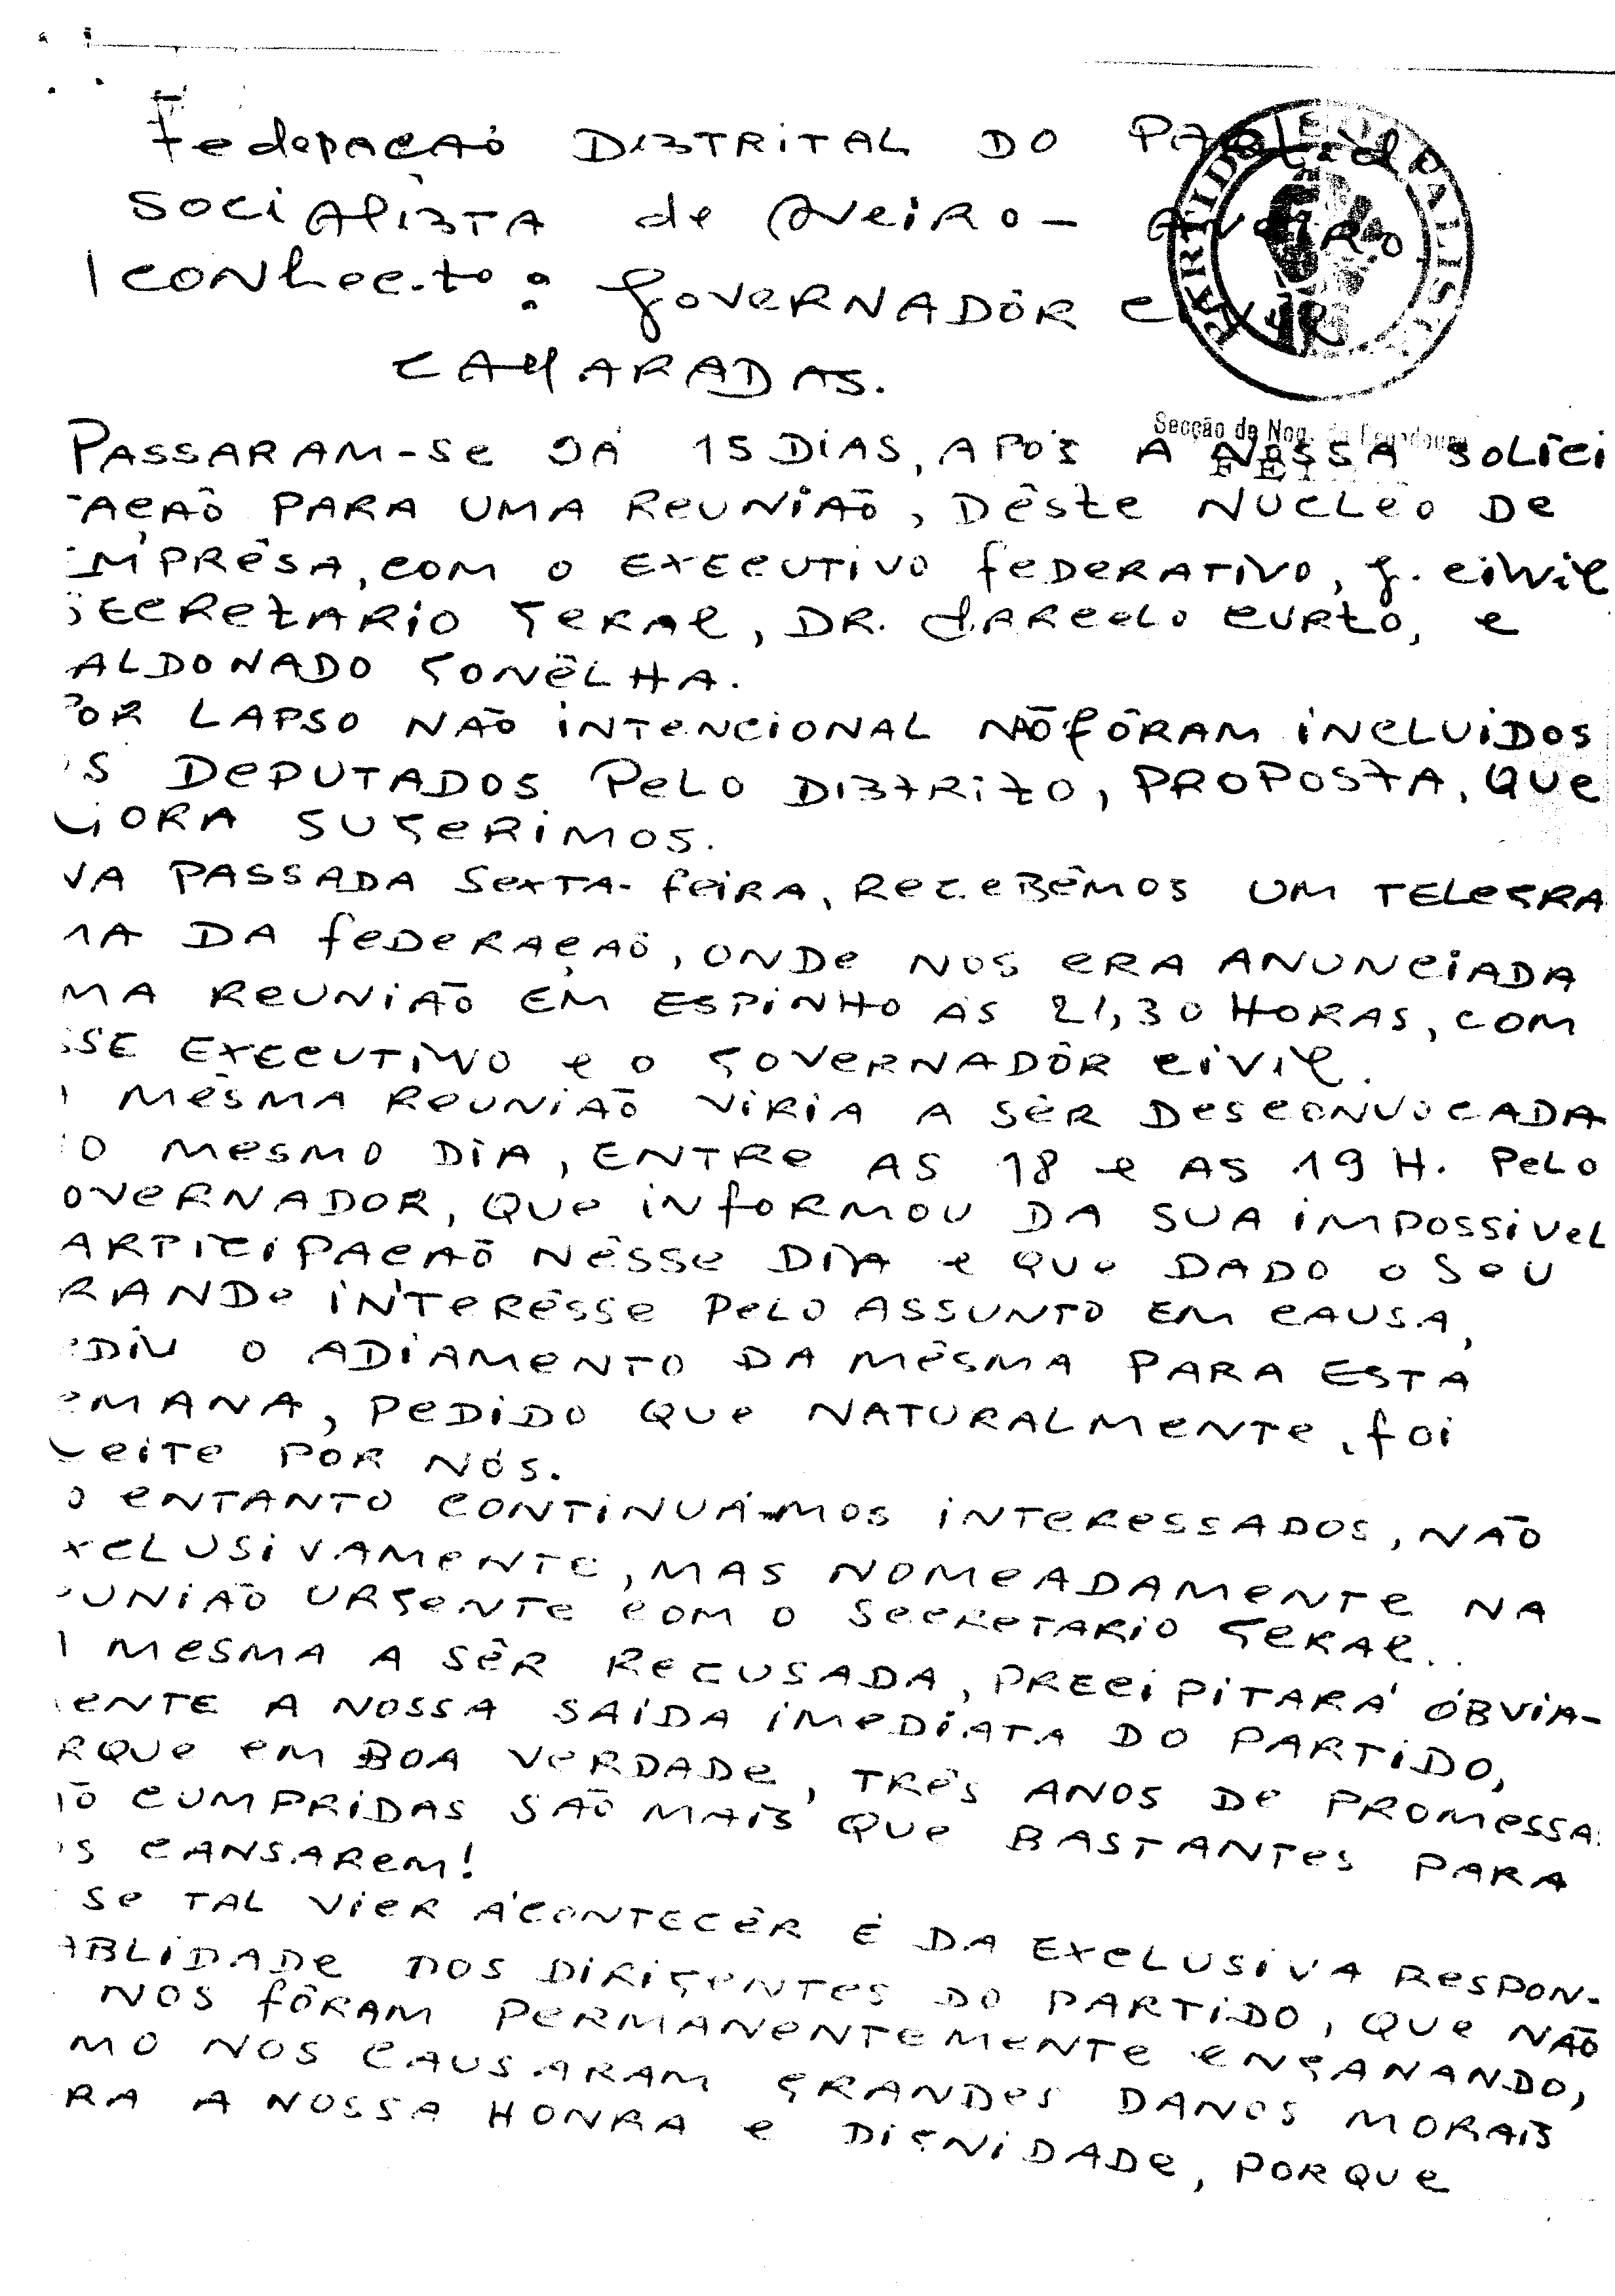 Federação DISTRITAL DO Partido
SOCIALISTA de AVEIRO - AVEIRO
CONhec.to: GOVERNADÔR CIVIL
PARTIDO SOCIALISTA
CAMARADAS.
Secção de Noq.
PASSARAM-Se JÁ 15 DIAS, APÓS A NOSSA SOLICI
TAÇAÕ PARA UMA REUNIAÕ, DÊSTE NUCLEO DE
EMPRÊSA, COM O EXECUTIVO FEDERATIVO, G. CIVIL
SECRETARIO GERAL, DR. MARCELO CURTO, e
MALDONADO GONÊLHA.
POR LAPSO NAÕ INTENCIONAL NAÕ FÔRAM INCLUIDOS
OS DEPUTADOS PELO DISTRITO, PROPOSTA, QUE
AGORA SUGERIMOS.
NA PASSADA SEXTA-FEIRA, RECEBÊMOS UM TELEGRA
MA DA FEDERAÇAÕ, ONDE NOS ERA ANUNCIADA
MA REUNIAÕ EM ESPINHO AS 21,30 HORAS, COM
SSE EXECUTIVO e O GOVERNADÔR CIVIL.
A MÊSMA REUNIAÕ VIRIA A SÊR DESCONVOCADA
O MESMO DIA, ENTRE AS 18 e AS 19 H. PELO
OVERNADOR, QUE INFORMOU DA SUA IMPOSSIVEL
ARTICIPAÇAÕ NÊSSE DIA e QUE DADO O SEU
RANDE INTERÊSSE PELO ASSUNTO EM CAUSA,
EDIU O ADIAMENTO DA MÊSMA PARA ESTA
EMANA, PEDIDO QUE NATURALMENTE, FOI
CEITE POR NÓS.
O ENTANTO CONTINUÁ-MOS INTERESSADOS, NAÕ
XCLUSIVAMENTE, MAS NOMEADAMENTE NA
EUNIAÕ URGENTE COM O SECRETARIO GERAL..
A MESMA A SÊR RECUSADA, PRECIPITARÁ ÓBVIA-
MENTE A NOSSA SAIDA IMEDIATA DO PARTIDO,
RQUE EM BOA VERDADE, TRÊS ANOS DE PROMESSAS
ÃO CUMPRIDAS SAÕ MAIS QUE BASTANTES PARA
OS CANSAREM!
SE TAL VIER ÁCONTECÊR É DA EXCLUSIVA RESPON-
ABLIDADE DOS DIRIGENTES DO PARTIDO, QUE NAÕ
NOS FÔRAM PERMANENTEMENTE ENGANANDO,
MO NOS CAUSARAM GRANDES DANOS MORAIS
RA A NOSSA HONRA e DIGNIDADE, PORQUE